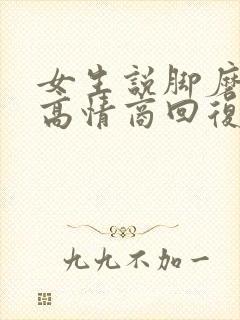 女生説脚麻
高情商回復
九九不加一